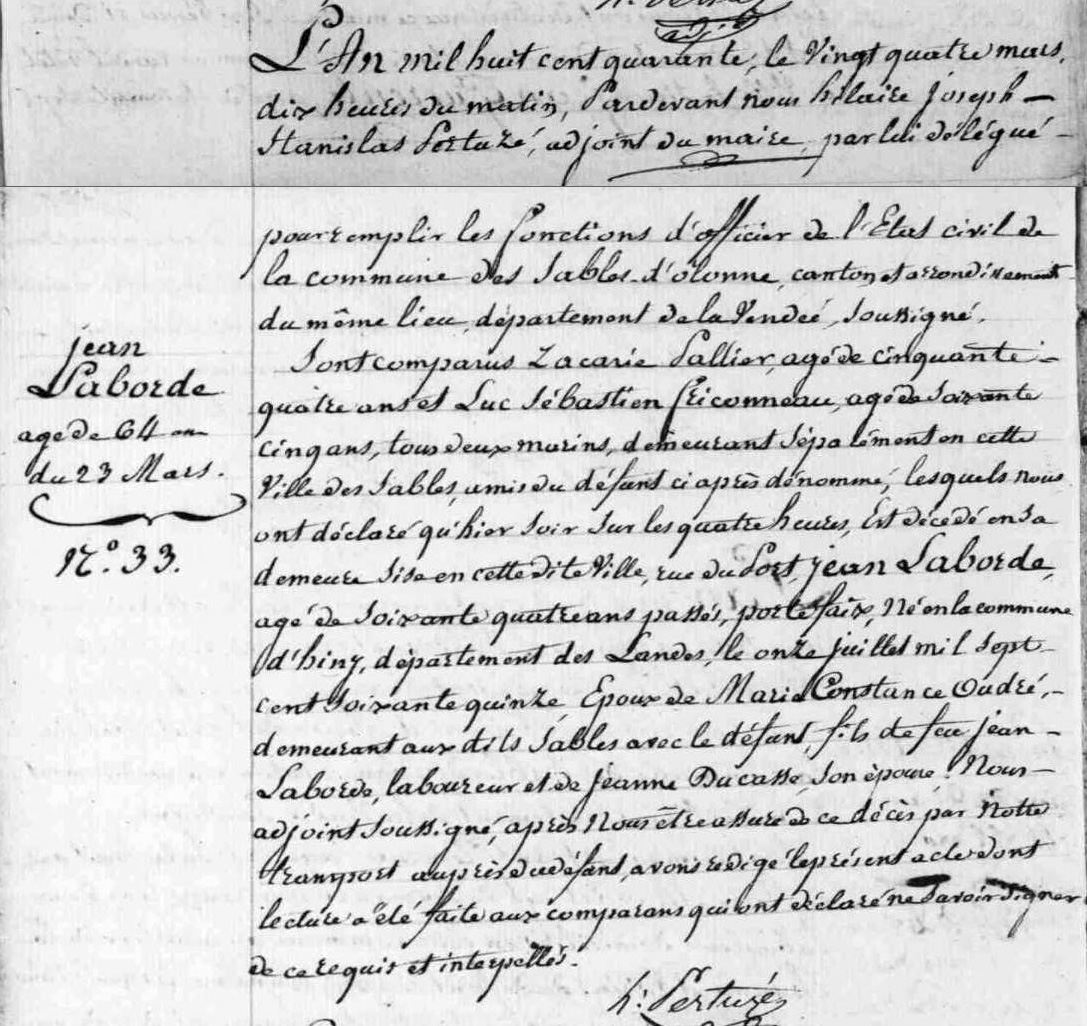 L'An mil huit cent quarante, le Vingt quatre mars,
dix heures du matin, Pardevant nous hilaire joseph —
Stanislas Pertuzé, adjoint du maire, par lui délégué —
pour remplir les fonctions d'officier de l'Etat civil de
la commune des Sables d'olonne, canton et arrondissement
du même lieu, département de la Vendeé, Soussigné.
Sont comparus Zacarie Pallier, agé de cinquante —
quatre ans et Luc Sébastien friconneau, agé de Soixante
cinq ans, tous deux marins, demeurant Séparément en cette
Ville des Sables, amis du défunt ci après dénommé, lesquels nous
ont déclaré qu'hier Soir Sur les quatre heures, Est décedé en Sa
demeure Sise en cette dite Ville, rue du Port, jean Laborde,
agé de Soixante quatre ans passés, porte faix, Né en la commune
d'hinx, département des Landes, le onze juillet mil Sept
cent Soixante quinze, Epoux de Marie Constance Oudré, —
demeurant aux dits Sables avec le défunt, fils de feu jean —
Laborde, laboureur et de jeanne Ducasse, Son épouse. Nous —
adjoint Soussigné, après Nous être assuré de ce décès par Notre
transport auprès du défunt, avons redigé le présent acte dont
lecture a été faite aux comparans qui ont déclaré ne Savoir Signer
de ce requis et interpellés.
h: Pertuzé
jean
Laborde
agé de 64 ans
du 23 Mars.
N.° 33.